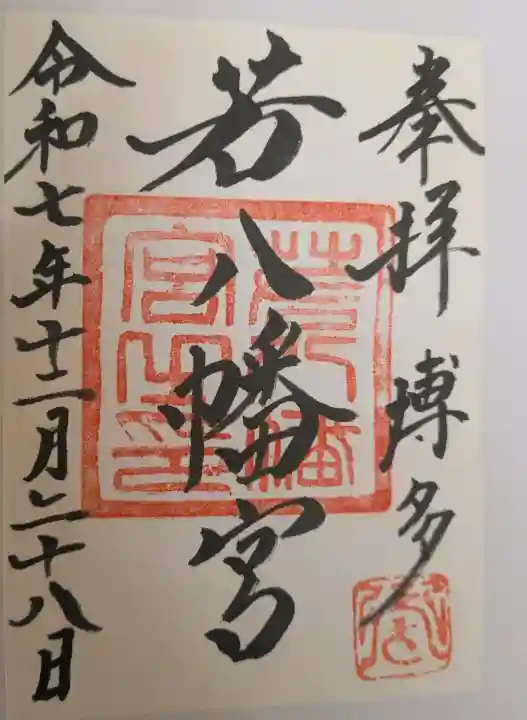 奉拝 博多
若八幡宮
令和七年十二月二十八日
若八幡
宮之印